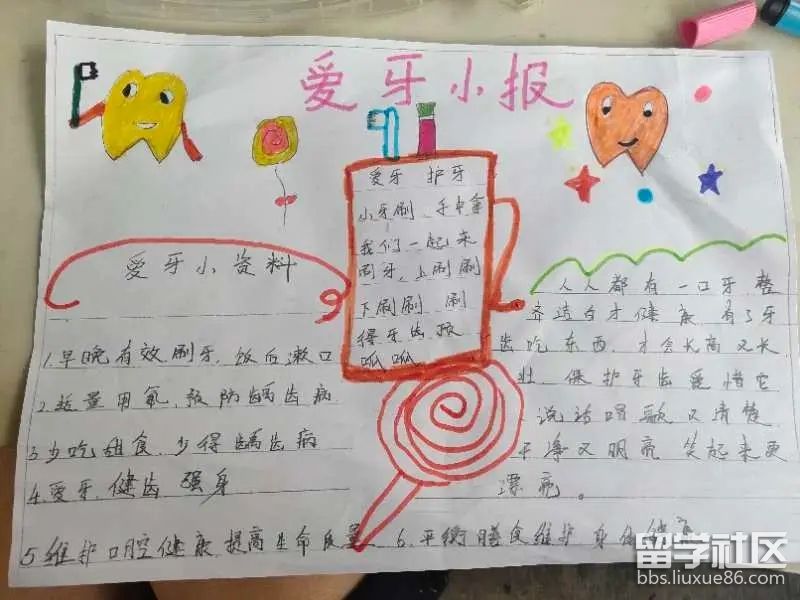 爱牙小报
爱牙 护牙
小牙刷 手中拿
我们一起来
刷牙,上刷刷
下刷刷 刷
得牙齿
呱呱
爱牙小资料
1.早晚有效刷牙,饭后漱口
2.适量用氟,预防龋齿病
3少吃甜食,少得龋齿病
4.爱牙,健齿 强身
5维护口腔健康,提高生命质量
6.平衡膳食维护身体健康
人人都有一口牙,整
齐洁白才健康,有了牙
齿吃东西,才会长高又长
壮,保护牙齿爱惜它
说话唱歌又清楚
干净又明亮 笑起来更
漂亮。
留学社区
bbs.liuxue86.com